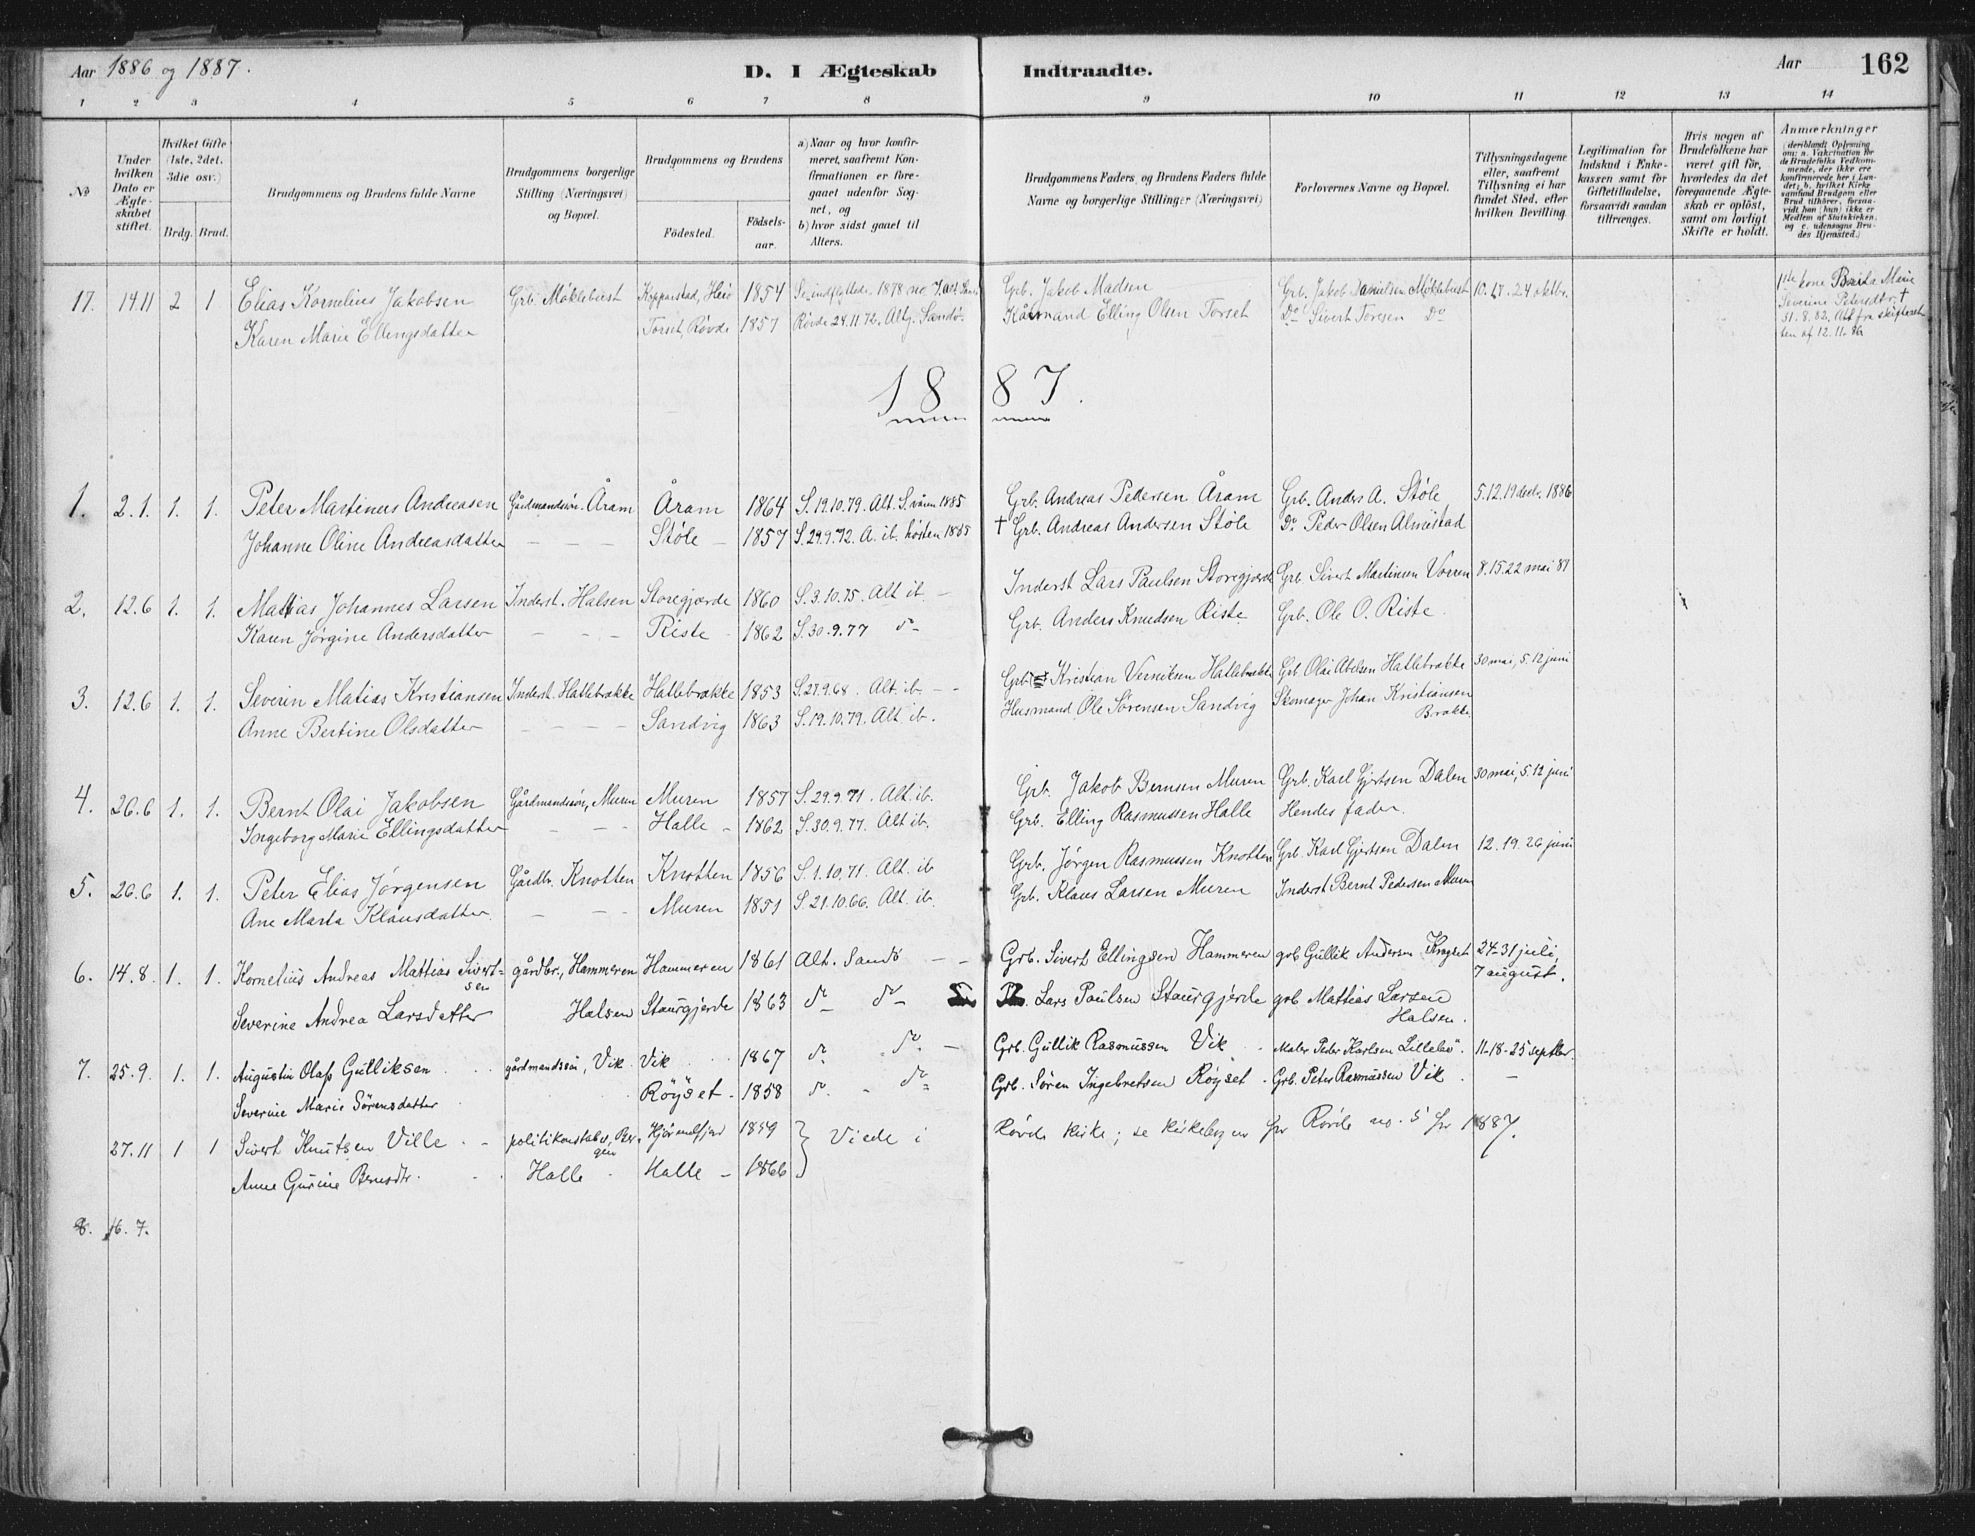 Aar 1886 og 1887.
D. I Ægteskab Indtraadte.
Aar 162
1 2 3 4 5 6 7 8 9 10 11 12 13 14
No
Under hvilken Dato er Ægteskabet stiftet.
Hvilket Gifte (1ste, 2det, 3die osv.)
Brdg. Brud.
Brudgommens og Brudens fulde Navne
Brudgommens borgerlige Stilling (Næringsvei) og Bopæl.
Brudgommens og Brudens
Födested. Födselsaar.
a) Naar og hvor konfirmeret, saafremt Konfirmationen er foregaaet udenfor Sognet, og
b) hvor sidst gaaet til Alters.
Brudgommens Faders, og Brudens Faders fulde Navne og borgerlige Stillinger (Næringsvei)
Forlovernes Navne og Bopæl.
Tillysningsdagene eller, saafremt Tillysning ei har fundet Sted, efter hvilken Bevilling.
Legitimation for Indskud i Enkekassen samt for Giftetilladelse, forsaavidt saadan tiltrænges.
Hvis nogen af Brudefolkene har været gift för, hvorledes da det foregaaende Ægteskab er oplöst, samt om lovligt Skifte er holdt.
Anmærkninger (deriblandt Oplysning om: a. Vakcination for de Brudefolks Vedkommende, der ikke ere konfirmerede her i Landet; b. hvilket Kirkesamfund Brudgom eller Brud tilhörer, forsaavidt han (hun) ikke er Medlem af Statskirken, og c. udensogns Brudes Hjemsted.)
17. 14.11 2 1 Elias Kornelius Jakobsen Grb. Möklebust Kopparstad, Herö 1854 Se indflyttede 1878 no 7. Alt. Sandö Grb. Jakob Madsen Grb. Jakob Danielsen Möklebust 10. 17. 24 oktbr. 1ste kone Berita Marie
Karen Marie Ellingsdatter Torset, Rövde 1857 Rövde 24.11.72. Altg. Sandö. Elling Olsen Torset Do Sivert Toresen Do
Severine Petersdtr. †
31.8.82. Att fra skifteret-
ten af 12.11.86
1887.
1. 2.1. 1. 1. Peter Martinus Andreasen Gårdmandssön. Åram Åram 1864 S. 19.10.79. Alt. S. våren 1885 Grb. Andreas Pedersen Åram Grb. Anders A. Stöle 5.12.19 decbr. 1886
Johanne Oline Andreasdatter — — — Stöle — 1857 S. 29.9.72. A. ib. hösten 1885 † Grb. Andreas Andersen Stöle Do Peder Olsen Almestad
2. 12.6 1. 1. Mattias Johannes Larsen Inderst. Halsen Storegjærde 1860 S. 3.10.75. Alt ib — Inderst Lars Paulsen Storegjærde Grb. Sivert Martinsen Vorren 8.15.22 mai 87
Karen Jörgine Andersdatter — — — Riste 1862 S. 30.9.77 do Grb. Anders Knudsen Riste Grb. Ole O. Riste.
3. 12.6 1. 1. Severin Matias Kristiansen Inderst. Hatlebrække Hatlebrække 1853 S. 27.9.68. Alt. ib. — — Grb Kristian Verniksen Hatlebrække Grb Olai Abelsen Hatlebrække 30 mai, 5. 12 juni
Anne Bertine Olsdatter — — — — Sandvig 1863 S. 19.10.79. Alt ib. Husmand Ole Sörensen Sandvig Skomager Johan Kristiansen
Brække
4. 26.6 1. 1. Bernt Olai Jakobsen Gårdmandssön, Muren Muren 1857 S. 29.9.71. Alt. ib. Grb. Jakob Bernsen Muren Grb. Karl Gjertsen Dalen 30 mai, 5. 12 juni
Ingeborg Marie Ellingsdatter — — — Halle — 1862 S. 30.9.77. Alt ib. Grb. Elling Rasmussen Halle Hendes fader.
5. 26.6 1. 1. Peter Elias Jörgensen Gårdbr. Knotten Knotten 1856 S. 1.10.71. Alt. ib Grb. Jörgen Rasmussen Knotten Grb. Karl Gjertsen Dalen 12. 19. 26 juni
Ane Marta Klausdatter. — — — Muren 1851 S. 21.10.66. Alt. ib. Grb. Klaus Larsen Muren Inderst Bernt Pedersen Muren
6. 14.8. 1. 1. Kornelius Andreas Mattias Sivert- gårdbr., Hammeren Hammeren 1861 Alt. Sandö — — Grb. Sivert Ellingsen Hammeren grb Gullik Andersen 24-31 juli,
sen 7 august.
Severine Andrea Larsdatter Halsen Staurgjerde 1863 do do Lars Paulsen Staurgjerde grb Mattias Larsen
Halsen.
7. 25.9. 1. 1. Augustin Olaf Gulliksen gårdmandssön, Vik Vik 1867 do do — Grb. Gullik Rasmussen Vik Maler Peder Karlsen Lillebö. 11-18-25 septbr.
Severine Marie Sörensdatter Röyset 1858 do do Grb. Sören Ingebretsen Röyset Grb. Peter Rasmussen Vik —
27.11 1 1 Sivert Knutsen Ville politikonstabel, Ber- Hjörundfjord 1859 } Viede i Rövde kirke; se kirkebogen for Rövde no. 5 for 1887.
gen
Anne Gurine Berntdtr. Halle Halle — 1866
8. 16.7.